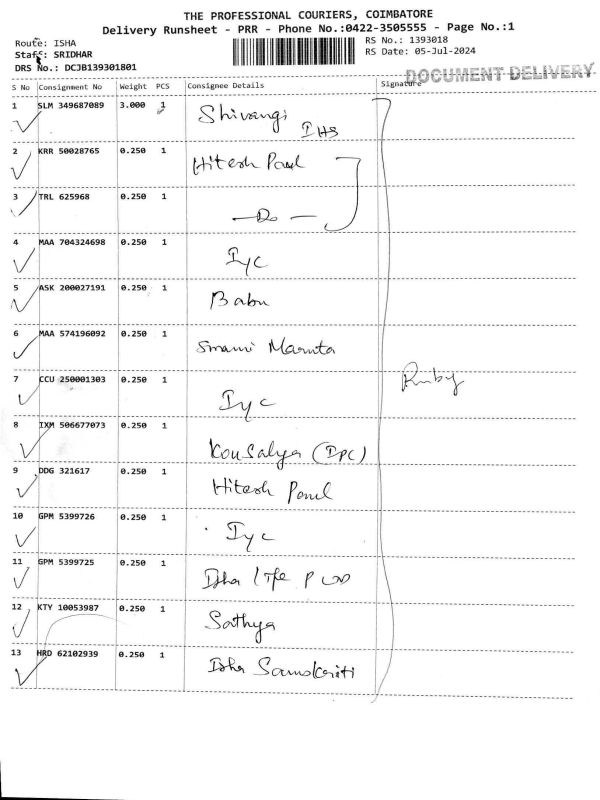 THE PROFESSIONAL COURIERS, COIMBATORE
Delivery Runsheet - PRR - Phone No.:0422-3505555 - Page No.:1
Route: ISHA
RS No.: 1393018
Staff: SRIDHAR
RS Date: 05-Jul-2024
DRS No.: DCJB139301801
DOCUMENT DELIVERY
S No Consignment No Weight PCS Consignee Details Signature
1 SLM 349687089 3.000 1 Shivangi IHS
2 KRR 50028765 0.250 1 Hitesh
3 TRL 625968 0.250 1 —Do—
4 MAA 704324698 0.250 1 Iyc
5 ASK 200027191 0.250 1 Babu
6 MAA 574196092 0.250 1 Swami
7 CCU 250001303 0.250 1 Iyc
Ruby
8 IXM 506677073 0.250 1 Kousalya (IPC)
9 DDG 321617 0.250 1 Hitesh
10 GPM 5399726 0.250 1 Iyc
11 GPM 5399725 0.250 1 Isha Life P
12 KTY 10053987 0.250 1 Sathya
13 HRD 62102939 0.250 1 Isha Samskriti